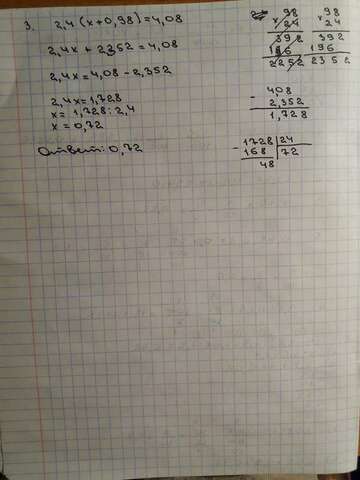 3. 2,4(x+0,98)=4,08
2,4x + 2352 = 4,08
2,4x = 4,08 - 2,352
2,4x = 1,728
x = 1,728 : 2,4
x = 0,72
Ответ: 0,72
98
× 24
392
196
2252
98
× 24
392
196
2352
- 408
2,352
1,728
- 1728 | 24
168 | 72
48